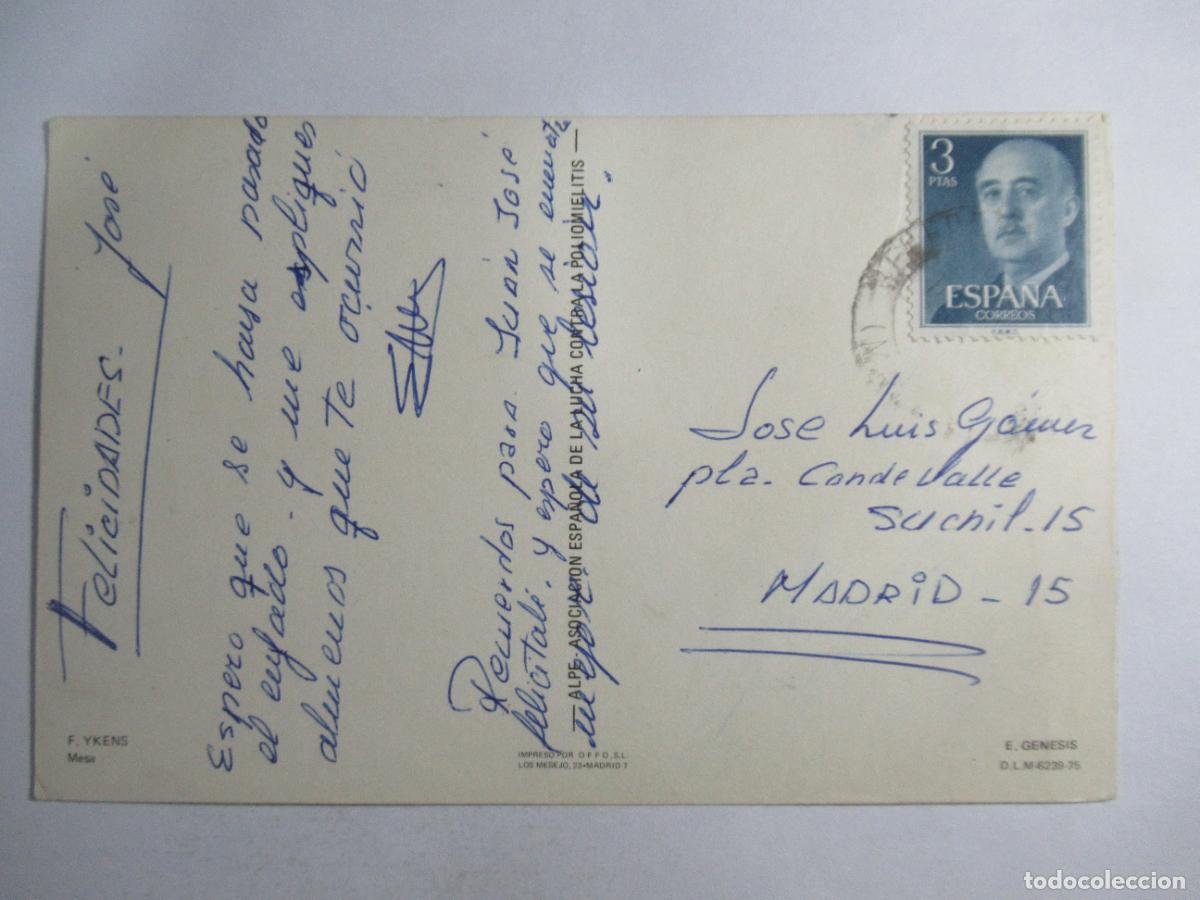 Felicidades - José
Espero que se haya pasado
el enfado - y me expliques
almenos que te ocurrió
Recuerdos para Juan José
felicitale. y espero que se encuentre
mejor de su lesión.
— ALPE - ASOCIACION ESPAÑOLA DE LA LUCHA CONTRA LA POLIOMIELITIS —
F. YKENS
Mesa
IMPRESO POR OFFO, S.L.
LOS MESEJO, 23 • MADRID 7
3
PTAS
ESPAÑA
CORREOS
F.N.M.T.
Jose Luis Gómez
plz. Conde Valle
Suchil - 15
MADRID - 15
E. GENESIS
D.L.M-6239-75
todocoleccion